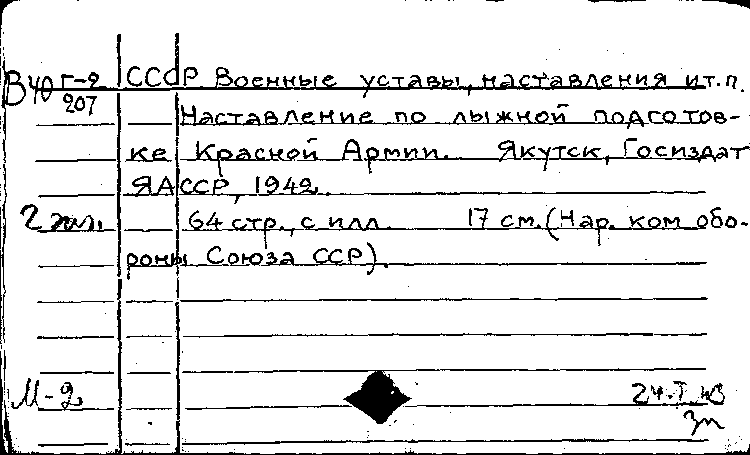 В40 Г-2/207 СССР. Военные уставы, наставления и т.п.
Наставление по лыжной подготов-
ке Красной Армии. Якутск, Госиздат
ЯАССР, 1942.
2 экз. 64 стр., с илл. 17 см. (Нар. ком обо-
роны Союза ССР).
М-2 24.I.43